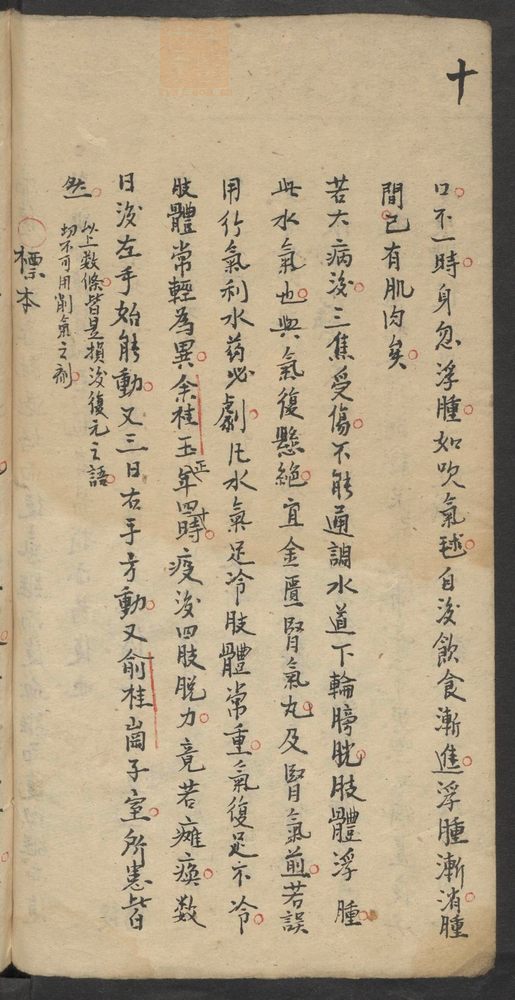 十
口不一時身忽浮腫如吹氣毬自後飲食漸進浮腫漸消腫
間已有肌肉矣
若大病後三焦受傷不能通調水道下輸膀胱肢體浮腫
此水氣也與氣復懸絶宜金匱腎氣丸及腎氣煎若誤
用行氣利水药必劇凡水氣足冷肢體常重氣復足不冷
肢體常輕為異余桂玉年四正時疫後四肢脫力竟若癱瘓数
日後左手始能動又三日右手方動又俞桂崗子室所患皆
然以上数條皆是損後復元之語
切不可用削氣之剂
標本